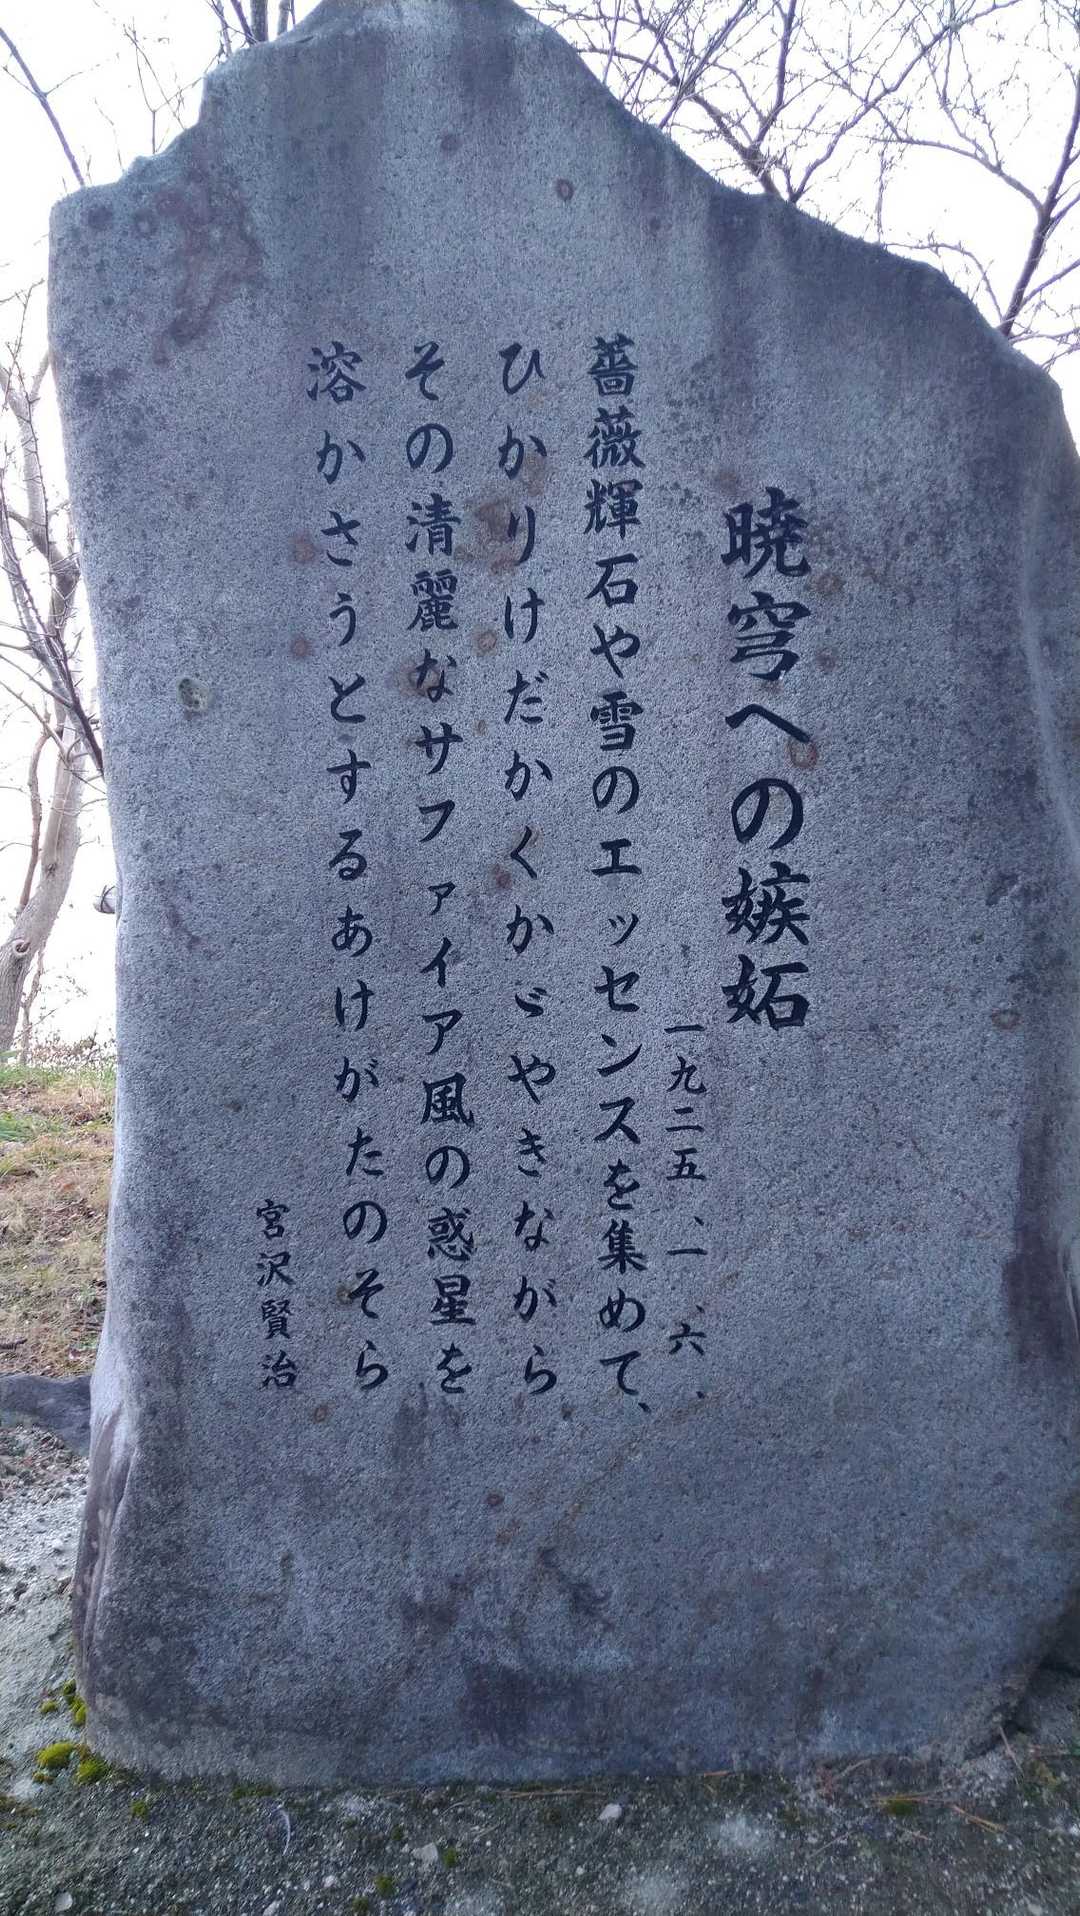 暁穹への嫉妬
一九二五、一、六、
薔薇輝石や雪のエッセンスを集めて、
ひかりけだかくかゞやきながら
その清麗なサファイア風の惑星を
溶かさうとするあけがたのそら
宮沢賢治